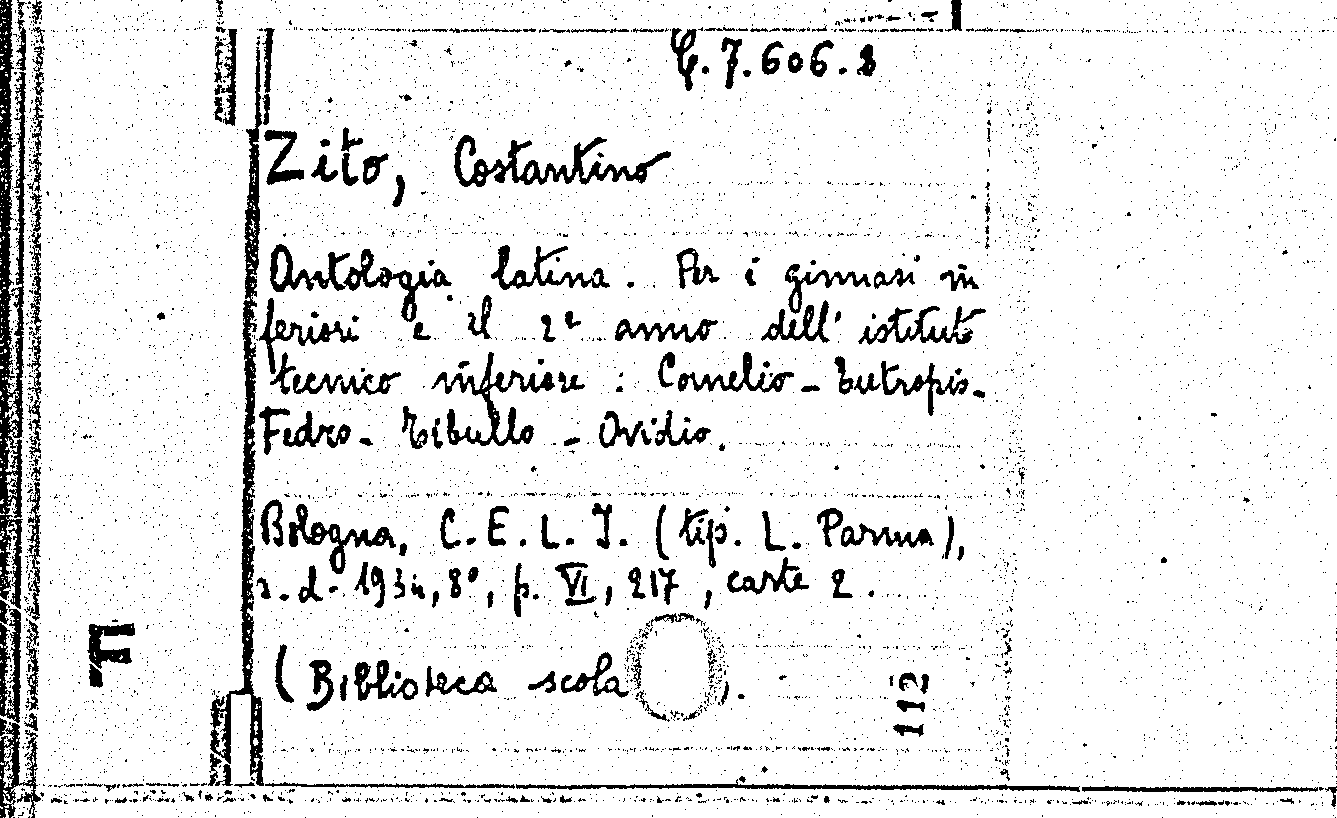 G.7.606.2
Zito, Costantino
Antologia latina. Per i ginnasi in
feriori e il 2º anno dell' istituto
tecnico inferiore : Cornelio - Eutropio -
Fedro - Tibullo - Ovidio.
Bologna, C.E.L.I. (tip. L. Parma),
s.d. 1934, 8º, p. VI, 217, carte 2.
(Biblioteca scola ).
F
112